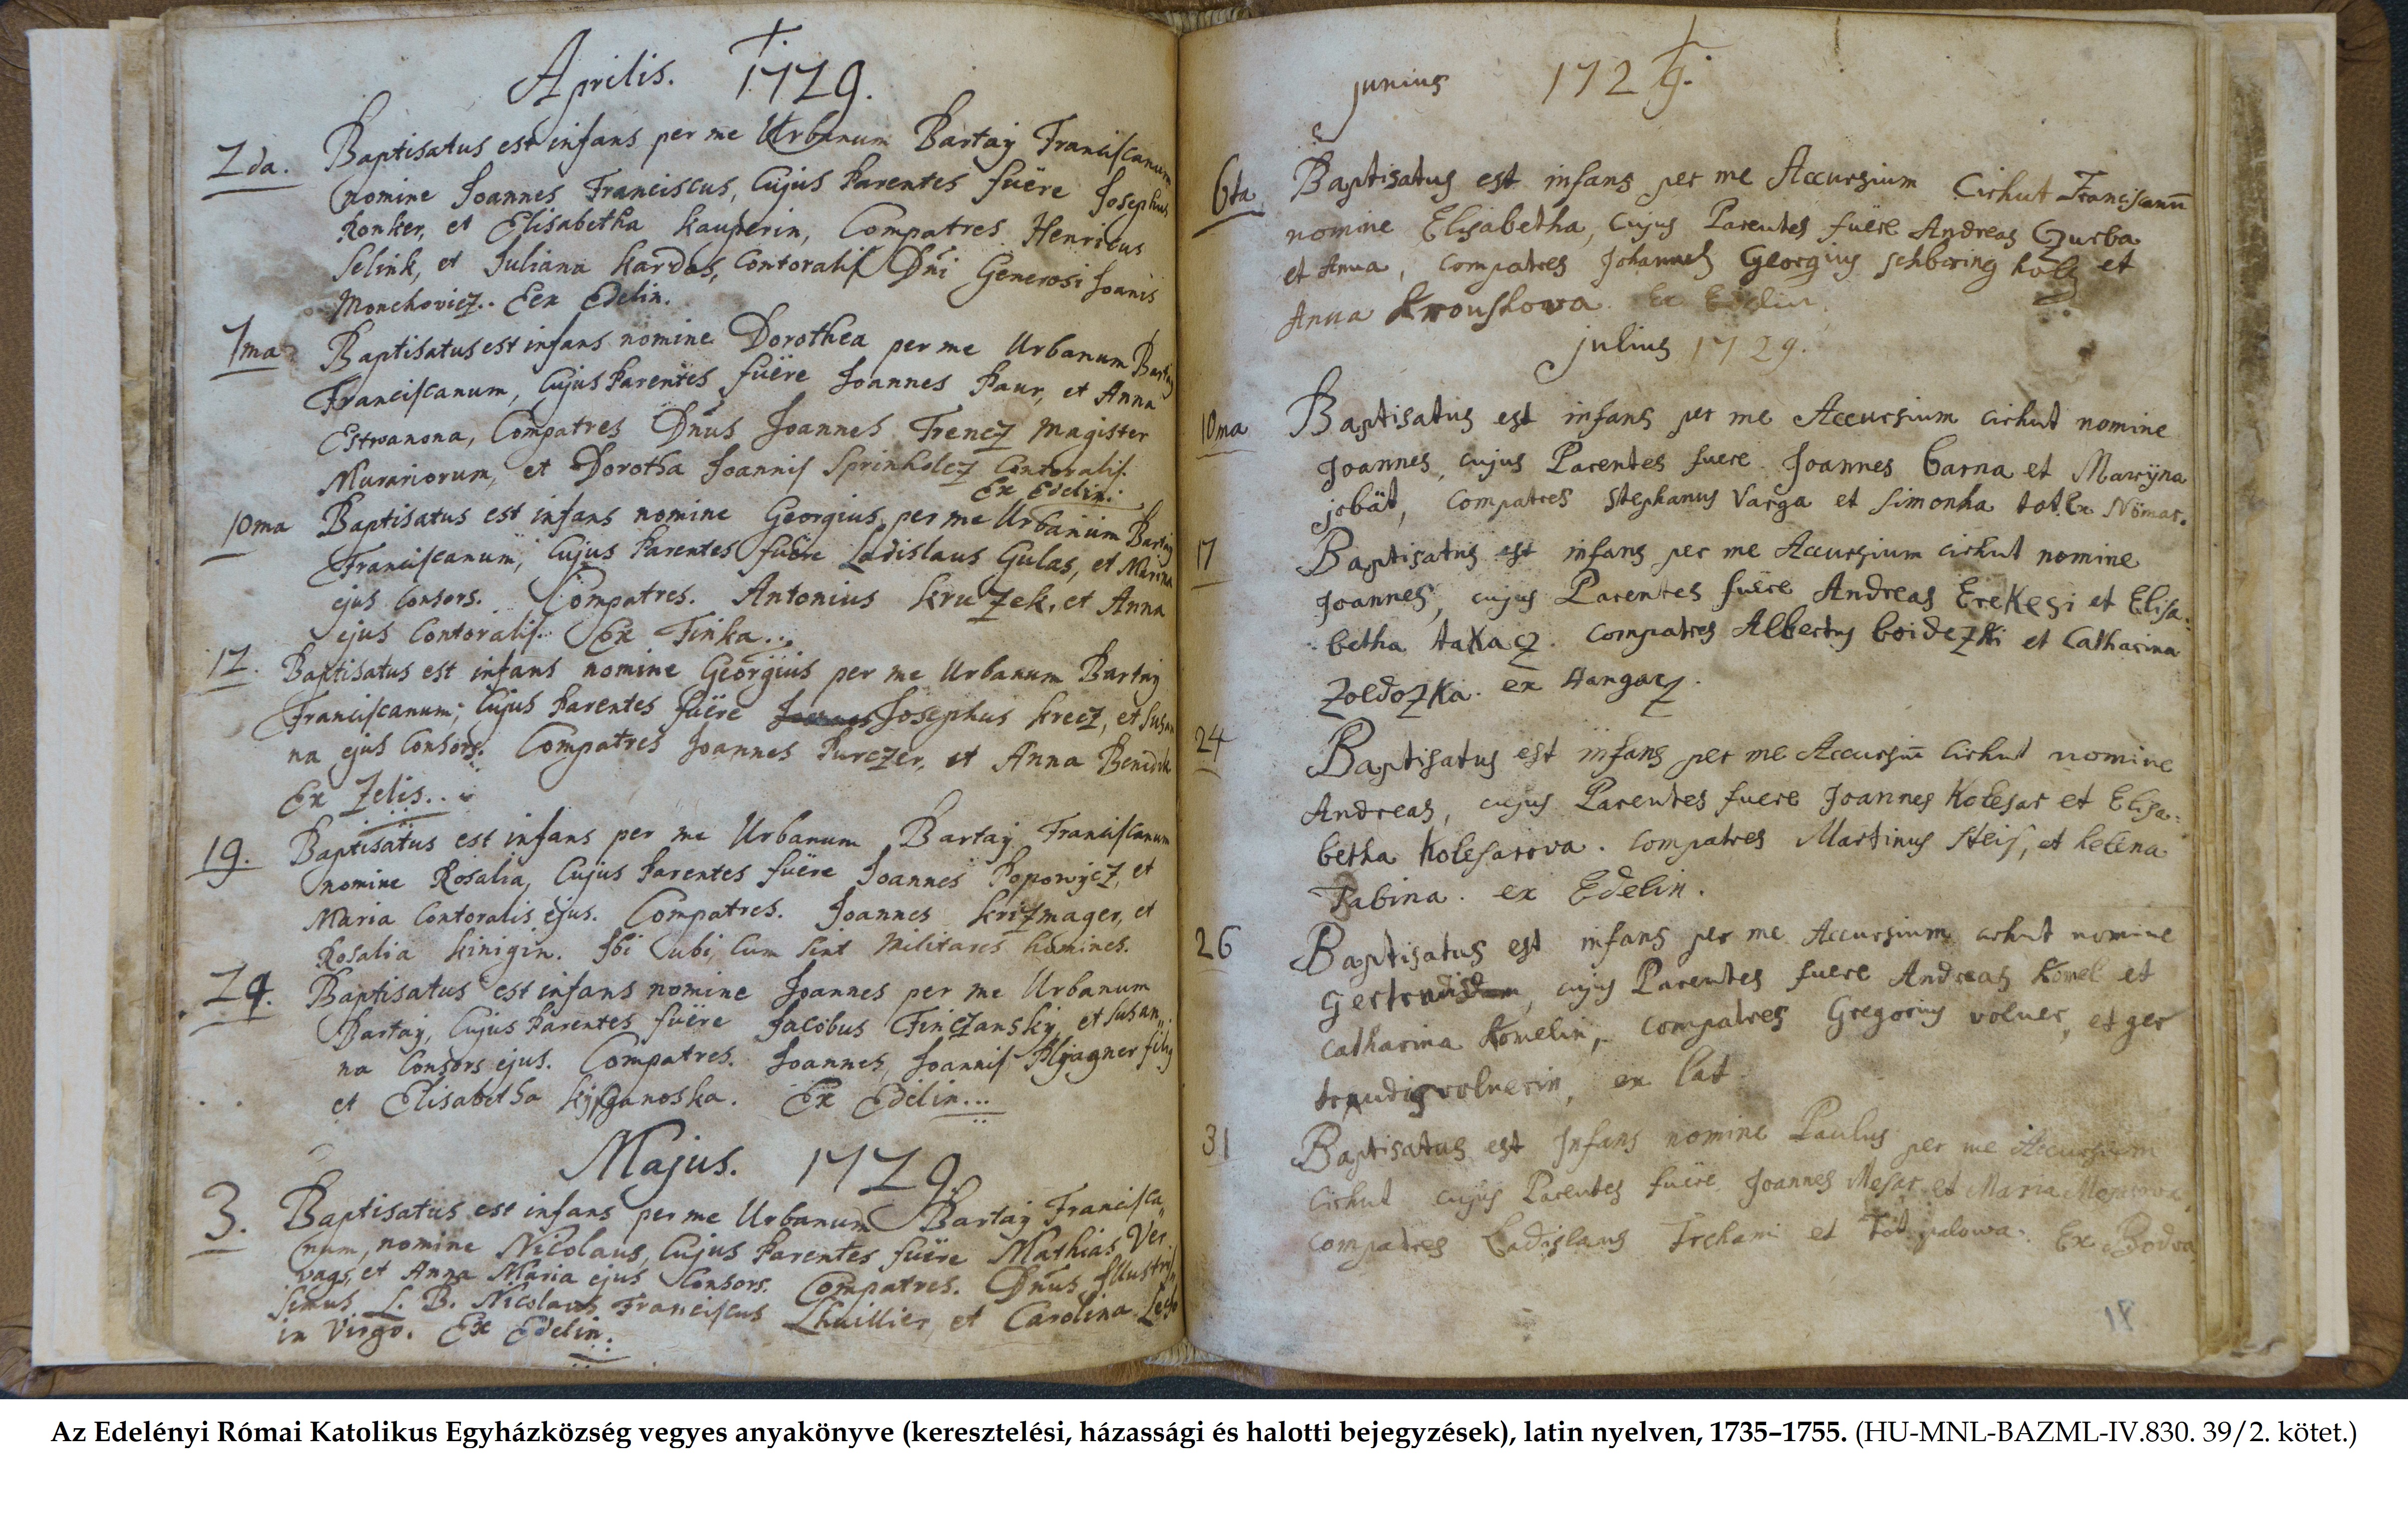 Aprilis. 1729.
2da. Baptisatus est infans per me Urbanum Bartaÿ Franciscanum
nomine Joannes Franciscus, Cujus Parentes fuëre Josephus
Ronker, et Elisabetha Kauperin, Compatres Henricus
Selink, et Juliana Kardos, Contoralis Dñi Generosi Joanis
Monchovicz. Ex Edelin.
7ma Baptisatus est infans nomine Dorothea per me Urbanum Bartaÿ
Franciscanum, Cujus Parentes fuëre Joannes Paur, et Anna
Estwanona, Compatres Dñus Joannes Trencz Magister
Murariorum, et Dorotha Joannis Sprinholcz Contoralis.
Ex Edelin.
10ma Baptisatus est infans nomine Georgius, per me Urbanum Bartaÿ
Franciscanum, Cujus Parentes fuëre Ladislaus Gulas, et Marina
ejus Consors. Compatres. Antonius Kruzek, et Anna
ejus Contoralis. Ex Finka.
12. Baptisatus est infans nomine Georgius per me Urbanum Bartaÿ
Franciscanum, Cujus Parentes fuëre Josephus Krecz, et Susan
na ejus Consors. Compatres Joannes Purczer, et Anna Benedik
Ex Zelis.
19. Baptisatus est infans per me Urbanum Bartaÿ Franciscanum
nomine Rosalia, Cujus Parentes fuëre Joannes Popowÿcz, et
Maria Contoralis ejus. Compatres. Joannes Krizmager, et
Rosalia Kinigin. Ibi ubi, Cum sint Militares homines.
24. Baptisatus est infans nomine Joannes per me Urbanum
Bartaÿ, Cujus Parentes fuëre Jacobus Finczanskÿ, et Susan„
na Consors ejus. Compatres. Joannes, Joannis filÿ
et Elisabetha. Ex Edelin...
Majus. 1729
3. Baptisatus est infans per me Urbanum Bartaÿ Francisca„
num, nomine Nicolaus, Cujus Parentes fuëre Mathias Ver
vags, et Anna Maria ejus Consors. Compatres. Dñus Illustris„
simus L. B. Nicolaus Franciscus Lhuillier, et Carolina
in Virgo. Ex Edelin.
junius 1729.
6ta Baptisatus est infans per me Accursium Cirhut Franciscanū
nomine Elisabetha, cujus Parentes fuëre Andreas Gurba
et Anna, compatres Johannes Georgius schbaring et
Anna Krouskowa. Ex Edelin.
julius 1729.
10ma Baptisatus est infans per me Accursium cirhut nomine
Joannes, cujus Parentes fuere Joannes barna et Marijna
jobät, compatres stephanus Varga et simonha tot. Ex Nömar.
17 Baptisatus est infans per me Accursium cirhut nomine
Joannes, cujus Parentes fuëre Andreas Erekesi et Elisa„
betha takacz. compatres Albertus boidezki et Catharina
Zoldozka. ex Hangacz.
24 Baptisatus est infans per me Accursiū Cirhut nomine
Andreas, cujus Parentes fuere Joannes Kolesar et Elisa„
betha Kolesarova. compatres Martinus Steis, et helena
Babina. ex Edelin.
26 Baptisatus est infans per me Accursium cirhut nomine
gertrudis, cujus Parentes fuere Andreas Komel et
catharina Komelin, compatres Gregorius volner, et ger
traudis volnerin, ex lat
31 Baptisatus est Infans nomine Paulus per me Accursium
Cirhut cujus Parentes fuëre Joannes Mesar et Maria Mesarova
compatres Ladislaus Trchami et Tot palowa. Ex Bodva
18
Az Edelényi Római Katolikus Egyházközség vegyes anyakönyve (keresztelési, házassági és halotti bejegyzések), latin nyelven, 1735–1755. (HU-MNL-BAZML-IV.830. 39/2. kötet.)